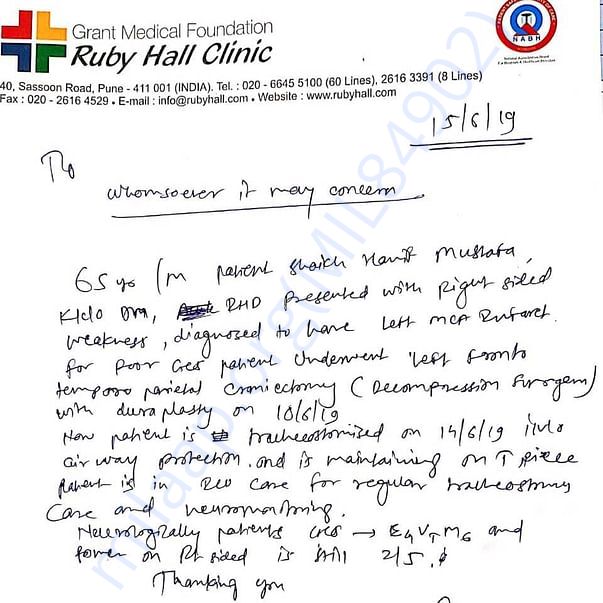 Grant Medical Foundation
Ruby Hall Clinic
NABH
40, Sassoon Road, Pune - 411 001 (INDIA). Tel. : 020 - 6645 5100 (60 Lines), 2616 3391 (8 Lines)
Fax : 020 - 2616 4529 • E-mail : info@rubyhall.com • Website : www.rubyhall.com
15/6/19
To
whomsoever it may concern
65 yo / m patient Shaikh Hanif Mustafa,
K/c/o DM, RHD presented with Right sided
weakness, diagnosed to have left MCA Infarct.
for poor GCS patient underwent left fronto
temporo parietal craniectomy (Decompression surgery)
with duraplasty on 10/6/19
Now patient is tracheostomised on 14/6/19 i/v/o
airway protection. and is maintaining on T piece
patient is in ICU care for regular tracheostomy
care and neuromonitoring.
Neurologically patients GCS → E4 VT M6 and
power on Rt sided is still 2/5.
Thanking you
milaap.org(MIL84902)